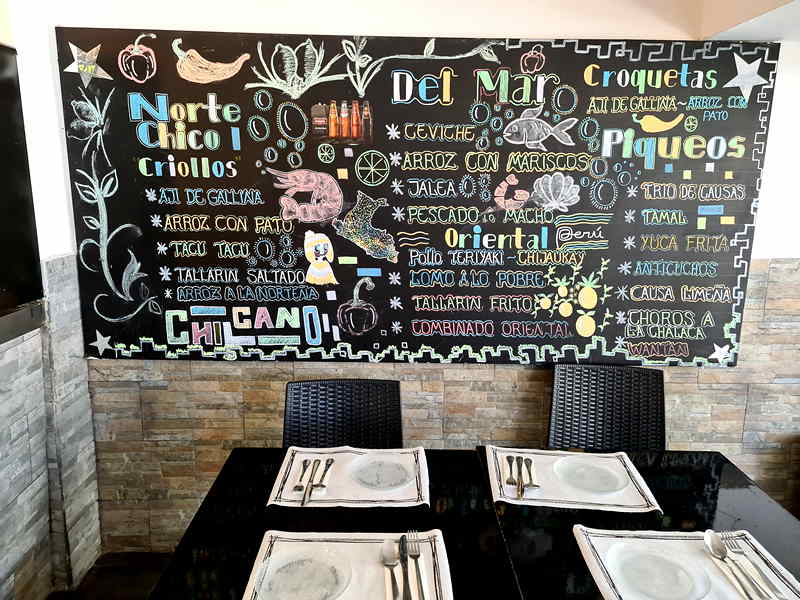 Norte
Chico I
"Criollos"
* AJI DE GALLINA
* ARROZ CON PATO
* TACU TACU
* TALLARIN SALTADO
* ARROZ A LA NORTEÑA
CHILCANO
Del Mar
* CEVICHE
* ARROZ CON MARISCOS
* JALEA
* PESCADO A LO MACHO
Oriental @erú
Pollo TERIYAKI ~ CHIJAUKAY
* LOMO A LO POBRE
* TALLARIN FRITO
* COMBINADO ORIENTAL
Croquetas
AJI DE GALLINA ~ ARROZ CON
PATO
Piqueos
* TRIO DE CAUSAS
* TAMAL
* YUCA FRITA
* ANTICUCHOS
* CAUSA LIMEÑA
* CHOROS A
LA CHALACA
* WANTAN